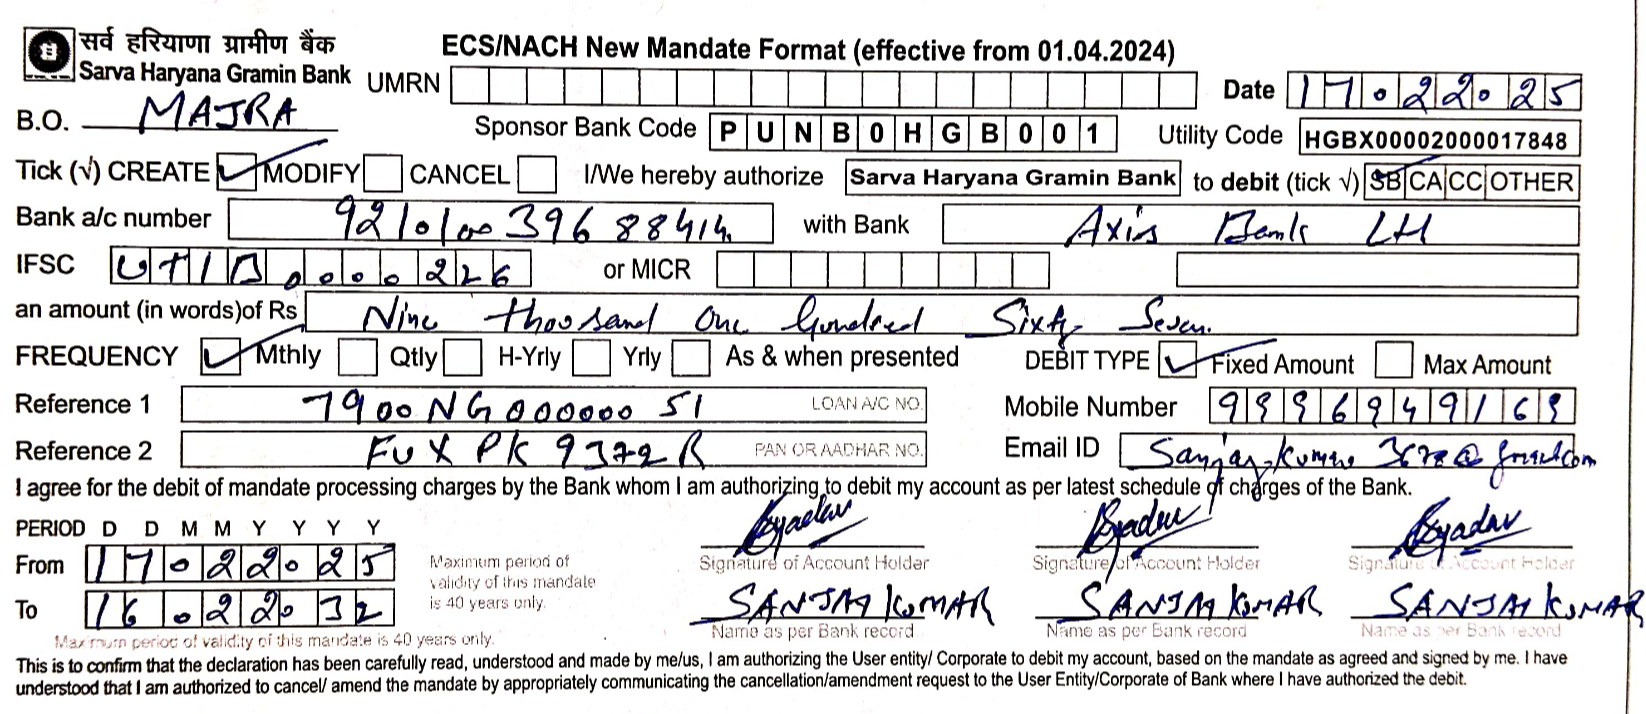 सर्व हरियाणा ग्रामीण बैंक
Sarva Haryana Gramin Bank
ECS/NACH New Mandate Format (effective from 01.04.2024)
UMRN
Date 17022025
B.O. MAJRA
Sponsor Bank Code PUNB0HGB001
Utility Code HGBX00002000017848
Tick (√) CREATE ✓ MODIFY CANCEL I/We hereby authorize Sarva Haryana Gramin Bank to debit (tick √) SB CA CC OTHER
Bank a/c number 921010039688414 with Bank Axis Bank Ltd
IFSC UTIB0000226 or MICR
an amount (in words)of Rs Nine thousand One hundred Sixty Seven.
FREQUENCY ✓ Mthly Qtly H-Yrly Yrly As & when presented DEBIT TYPE ✓ Fixed Amount Max Amount
Reference 1 7900NG00000051 LOAN A/C NO. Mobile Number 9996949169
Reference 2 FUXPK9372R PAN OR AADHAR NO. Email ID
I agree for the debit of mandate processing charges by the Bank whom I am authorizing to debit my account as per latest schedule of charges of the Bank.
PERIOD D D M M Y Y Y Y
From 17022025
To 16022032
Maximum period of
validity of this mandale
is 40 years only.
Maximum period of validity of this mandate is 40 years only.
Signature of Account Holder Signature of Account Holder Signature of Account Holder
SANJAY KUMAR SANJAY KUMAR SANJAY KUMAR
Name as per Bank record Name as per Bank record Name as per Bank record
This is to confirm that the declaration has been carefully read, understood and made by me/us, I am authorizing the User entity/ Corporate to debit my account, based on the mandate as agreed and signed by me. I have
understood that I am authorized to cancel/ amend the mandate by appropriately communicating the cancellation/amendment request to the User Entity/Corporate of Bank where I have authorized the debit.